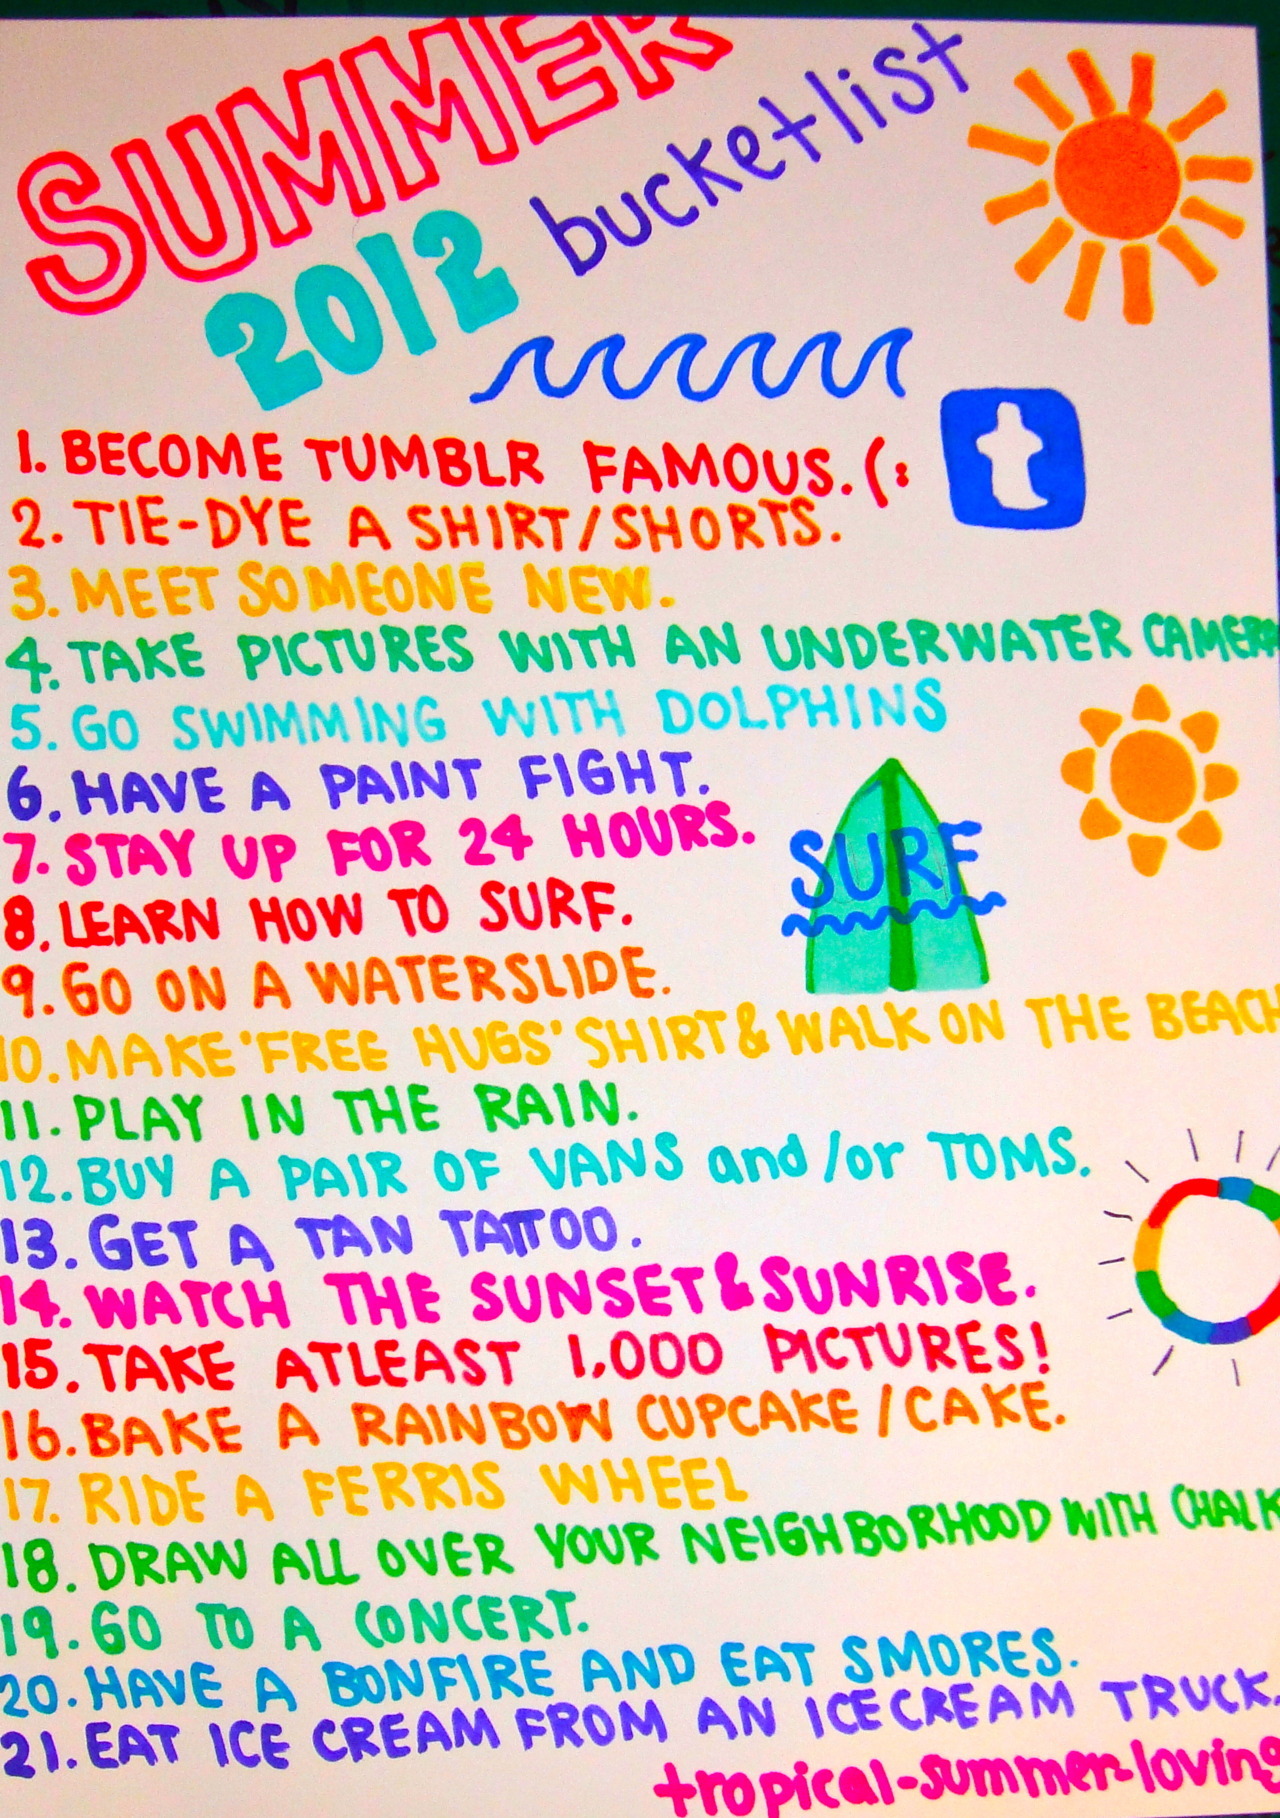 SUMMER
2012 bucketlist
t
1. BECOME TUMBLR FAMOUS. (:
2. TIE-DYE A SHIRT/SHORTS.
3. MEET SOMEONE NEW.
4. TAKE PICTURES WITH AN UNDERWATER CAMERA
5. GO SWIMMING WITH DOLPHINS
6. HAVE A PAINT FIGHT.
7. STAY UP FOR 24 HOURS.
SURF
8. LEARN HOW TO SURF.
9. GO ON A WATERSLIDE.
10. MAKE 'FREE HUGS' SHIRT & WALK ON THE BEACH
11. PLAY IN THE RAIN.
12. BUY A PAIR OF VANS and/or TOMS.
13. GET A TAN TATTOO.
14. WATCH THE SUNSET & SUNRISE.
15. TAKE ATLEAST 1,000 PICTURES!
16. BAKE A RAINBOW CUPCAKE / CAKE.
17. RIDE A FERRIS WHEEL
18. DRAW ALL OVER YOUR NEIGHBORHOOD WITH CHALK
19. GO TO A CONCERT.
20. HAVE A BONFIRE AND EAT SMORES.
21. EAT ICE CREAM FROM AN ICE CREAM TRUCK.
tropical-summer-loving